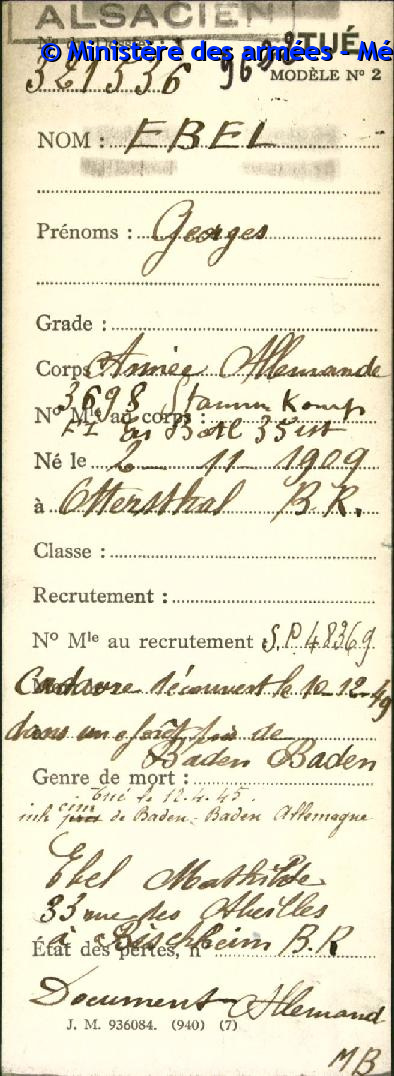 ALSACIEN
TUÉ
© Ministère des armées - Mé
321536
MODÈLE Nº 2
NOM : EBEL
Prénoms : Georges
Grade :
Corps Armée Allemande
3698 Stamm Komp
Nº Mle au corps :
Ers Batl 35 ist
Né le 2 11 1909
à Ottersthal B.R.
Classe :
Recrutement :
Nº Mle au recrutement S.P 48369
Cadavre découvert le 10-12-49
dans une forêt près de
Baden Baden
Genre de mort :
tué le 12.4.45.
inh cim de Baden-Baden Allemagne
Ebel Mathilde
33 rue des Abeilles
à Bischheim B.R
État des pertes, nº
Document Allemand
J. M. 936084. (940) (7)
MB